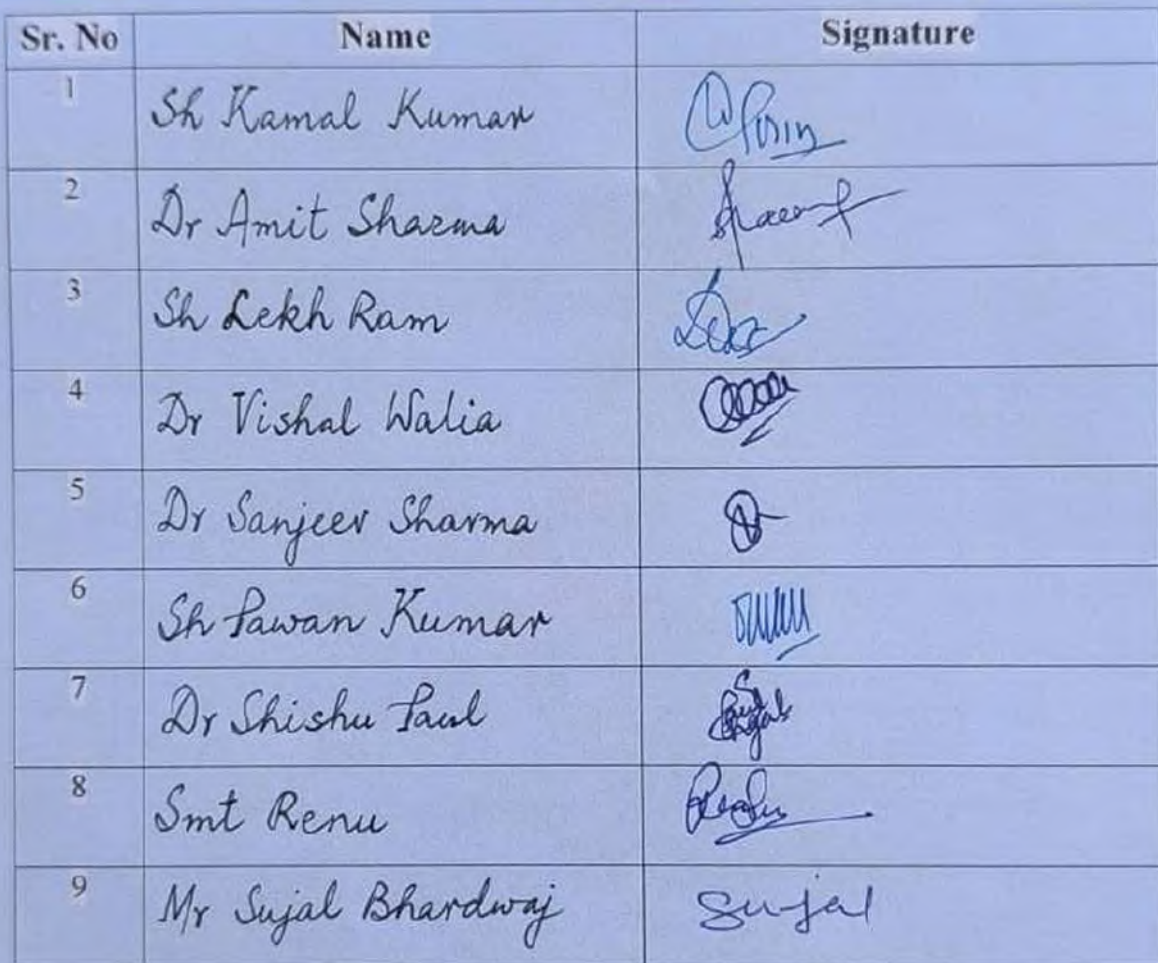 Sr. No Name Signature
1 Sh Kamal Kumar
2 Dr Amit Sharma
3 Sh Lekh Ram
4 Dr Vishal Walia
5 Dr Sanjeev Sharma
6 Sh Pawan Kumar
7 Dr Shishu Paul
8 Smt Renu
9 Mr Sujal Bhardwaj Sujal